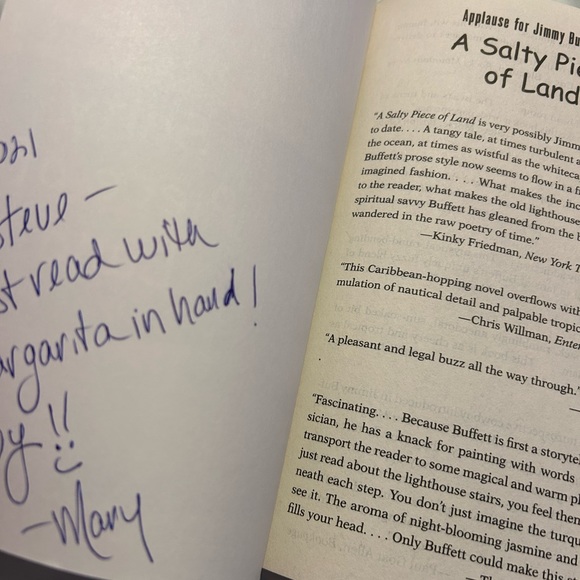 021
Steve —
st read with
argarita in hand!
oy!!
—Mary
Applause for Jimmy Bu
A Salty Pie
of Land
"A Salty Piece of Land is very possibly Jimm
to date. . . . A tangy tale, at times turbulent a
the ocean, at times as wistful as the whiteca
Buffett's prose style now seems to flow in a f
imagined fashion. . . . What makes the inc
to the reader, what makes the old lighthouse
spiritual savvy Buffett has gleaned from the b
wandered in the raw poetry of time."
—Kinky Friedman, New York T
"This Caribbean-hopping novel overflows with
mulation of nautical detail and palpable tropic
—Chris Willman, Enter
"A pleasant and legal buzz all the way through."
—
"Fascinating. . . . Because Buffett is first a storyte
sician, he has a knack for painting with words
transport the reader to some magical and warm pl
just read about the lighthouse stairs, you feel them
neath each step. You don't just imagine the turqu
see it. The aroma of night-blooming jasmine and
fills your head. . . . Only Buffett could make this s